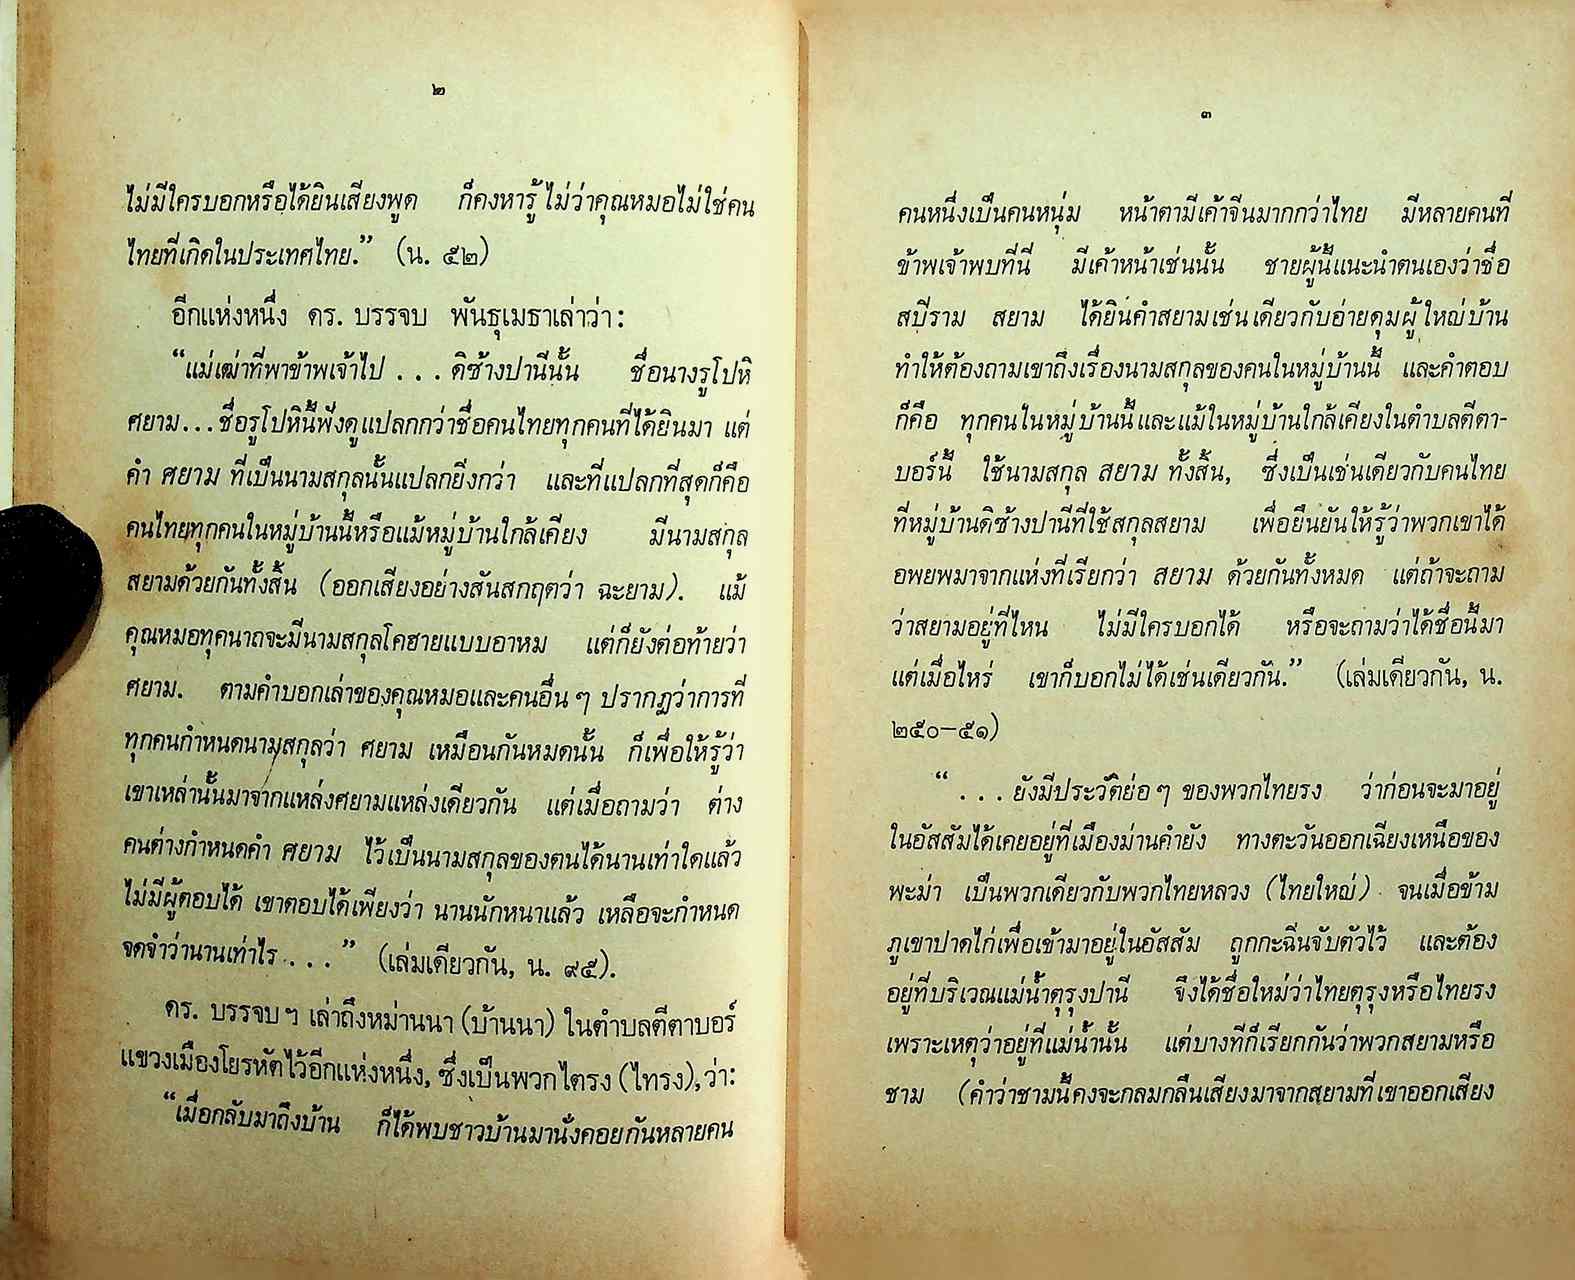 ๒
ไม่มีใครบอกหรือได้ยินเสียงพูด ก็คงหารู้ไม่ว่าคุณหมอไม่ใช่คน
ไทยที่เกิดในประเทศไทย.” (น. ๕๒)
อีกแห่งหนึ่ง ดร. บรรจบ พันธุเมธาเล่าว่า :
“แม่เฒ่าที่พาข้าพเจ้าไป . . . ดิช้างปานีนั้น ชื่อนางรูโปหิ
ศยาม...ชื่อรูโปหินี้ฟังดูแปลกกว่าชื่อคนไทยทุกคนที่ได้ยินมา แต่
คำ ศยาม ที่เป็นนามสกุลนั้นแปลกยิ่งกว่า และที่แปลกที่สุดก็คือ
คนไทยทุกคนในหมู่บ้านนี้หรือแม้หมู่บ้านใกล้เคียง มีนามสกุล
สยามด้วยกันทั้งสิ้น (ออกเสียงอย่างสันสกฤตว่า ฉะยาม). แม้
คุณหมอทุคนาถจะมีนามสกุลโคฮายแบบอาหม แต่ก็ยังต่อท้ายว่า
ศยาม. ตามคำบอกเล่าของคุณหมอและคนอื่น ๆ ปรากฏว่าการที่
ทุกคนกำหนดนามสกุลว่า ศยาม เหมือนกันหมดนั้น ก็เพื่อให้รู้ว่า
เขาเหล่านั้นมาจากแหล่งศยามแหล่งเดียวกัน แต่เมื่อถามว่า ต่าง
คนต่างกำหนดคำ ศยาม ไว้เป็นนามสกุลของตนได้นานเท่าใดแล้ว
ไม่มีผู้ตอบได้ เขาตอบได้เพียงว่า นานนักหนาแล้ว เหลือจะกำหนด
จดจำว่านานเท่าไร . . . ” (เล่มเดียวกัน, น. ๙๕).
ดร. บรรจบ ฯ เล่าถึงหม่านนา (บ้านนา) ในตำบลตีตาบอร์
แขวงเมืองโยรหัตไว้อีกแห่งหนึ่ง, ซึ่งเป็นพวกไตรง (ไทรง), ว่า:
“เมื่อกลับมาถึงบ้าน ก็ได้พบชาวบ้านมานั่งคอยกันหลายคน
๓
คนหนึ่งเป็นคนหนุ่ม หน้าตามีเค้าจีนมากกว่าไทย มีหลายคนที่
ข้าพเจ้าพบที่นี่ มีเค้าหน้าเช่นนั้น ชายผู้นี้แนะนำตนเองว่าชื่อ
สบีราม สยาม ได้ยินคำสยามเช่นเดียวกับอ่ายคุมผู้ใหญ่บ้าน
ทำให้ต้องถามเขาถึงเรื่องนามสกุลของคนในหมู่บ้านนี้ และคำตอบ
ก็คือ ทุกคนในหมู่บ้านนี้และแม้ในหมู่บ้านใกล้เคียงในตำบลตีตา-
บอร์นี้ ใช้นามสกุล สยาม ทั้งสิ้น, ซึ่งเป็นเช่นเดียวกับคนไทย
ที่หมู่บ้านดิช้างปานีที่ใช้สกุลสยาม เพื่อยืนยันให้รู้ว่าพวกเขาได้
อพยพมาจากแห่งที่เรียกว่า สยาม ด้วยกันทั้งหมด แต่ถ้าจะถาม
ว่าสยามอยู่ที่ไหน ไม่มีใครบอกได้ หรือจะถามว่าได้ชื่อนี้มา
แต่เมื่อไหร่ เขาก็บอกไม่ได้เช่นเดียวกัน.” (เล่มเดียวกัน, น.
๒๕๐—๕๑)
“ . . . ยังมีประวัติย่อ ๆ ของพวกไทยรง ว่าก่อนจะมาอยู่
ในอัสสัมได้เคยอยู่ที่เมืองม่านคำยัง ทางตะวันออกเฉียงเหนือของ
พะม่า เป็นพวกเดียวกับพวกไทยหลวง (ไทยใหญ่) จนเมื่อข้าม
ภูเขาปาดไก่เพื่อเข้ามาอยู่ในอัสสัม ถูกกะฉีนจับตัวไว้ และต้อง
อยู่ที่บริเวณแม่น้ำตุรุงปานี จึงได้ชื่อใหม่ว่าไทยตุรุงหรือไทยรง
เพราะเหตุว่าอยู่ที่แม่น้ำนั้น แต่บางทีก็เรียกกันว่าพวกสยามหรือ
ชาม (คำว่าชามนี้คงจะกลมกลืนเสียงมาจากสยามที่เขาออกเสียง